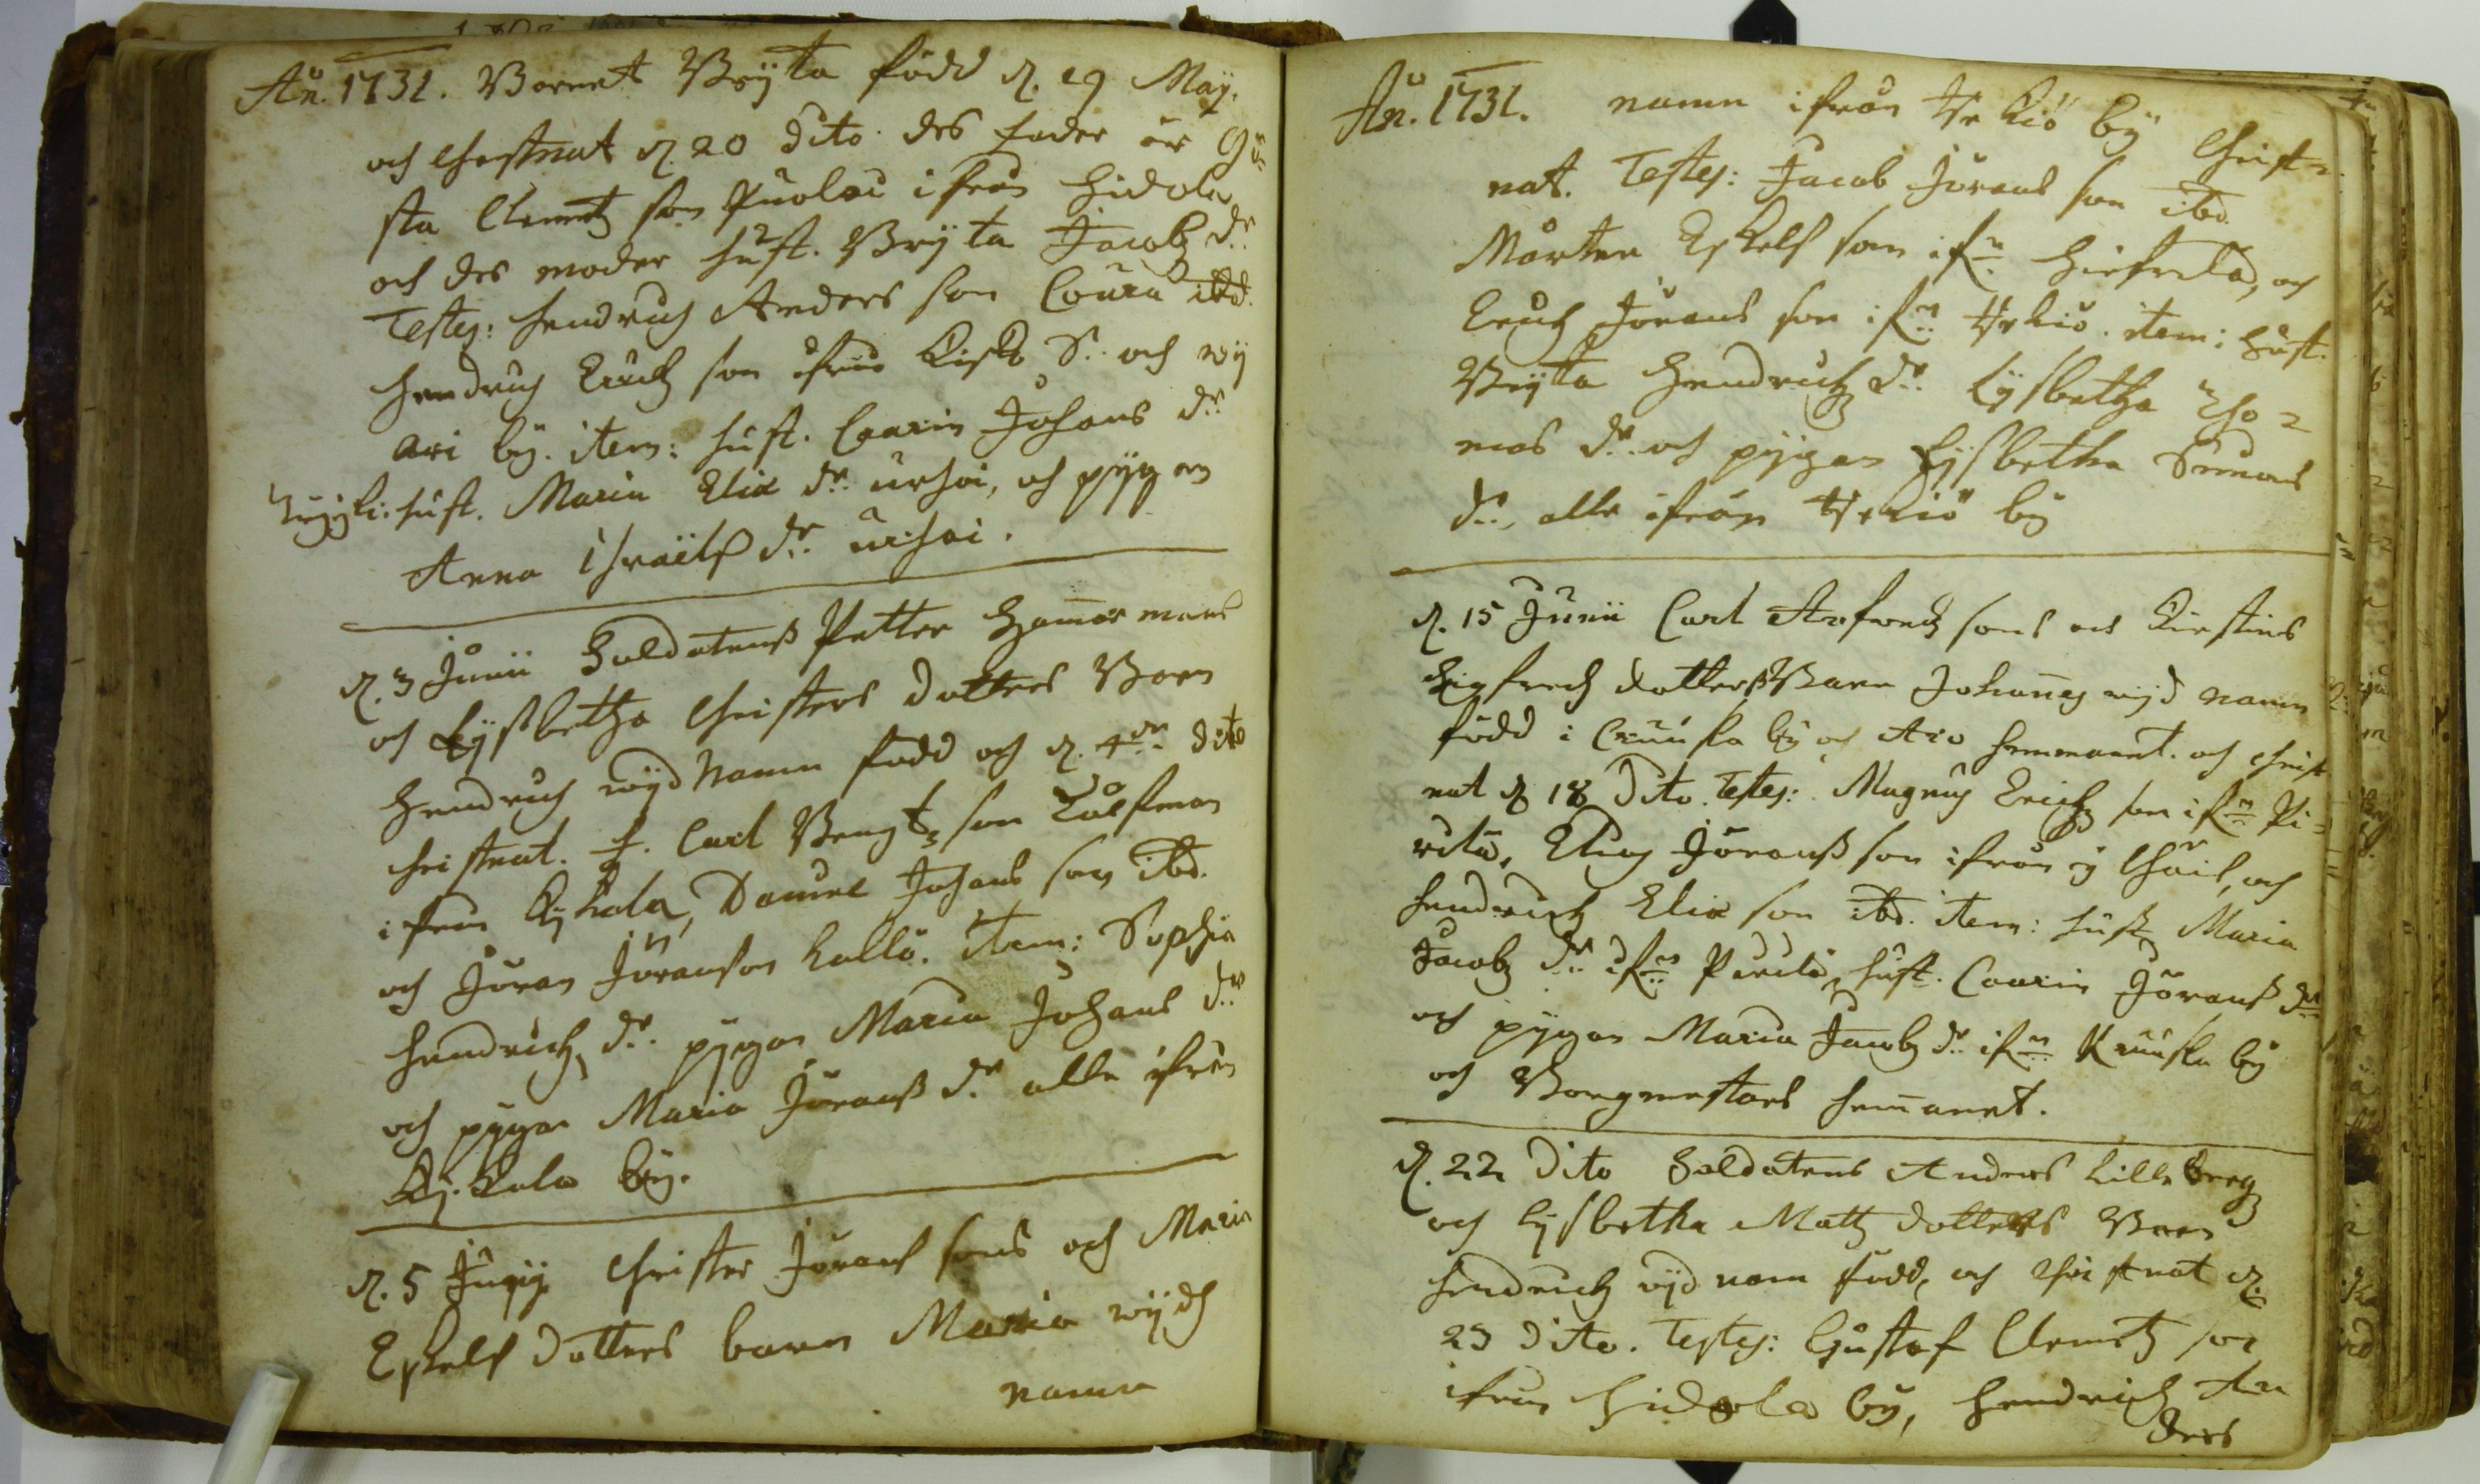 An. 1731. Barnet Brÿta född d. 19 Maÿ.
och Christnat d. 20 Dito. des fader är Gu-
sta Clemetz son Puolac ifrån Hidola
och des moder hust. Brÿta Jacobz dr.
Testes: Hendrich Anders son Coura ibd.
Hendrich Erichz son ifrån Kisko S. och wÿ
ari bÿ. item: hust. Caarin Johans dr.
hust. Maria Eliæ dr. urhoi, och pÿgan
Anna Israelss dr. urhoi.
d. 3 Junii Soldatenss Petter Hammarmans
och Lÿsbetha Christers dotters Barn
Hendrich wÿd Namn född och d. 4de. dito
christnat. t. Carl Bengtz son
ifrån Kÿkala, Daniel Johans son ibd.
och Jöran Jöranson Kallo. item: Sophia
Hendrichz dr. pÿgan Maria Johans dr.
och pÿgan Maria Jöranss dr. alle ifrån
Kÿkala bÿ.
d. 5 Junij Christer Jörans sons och Maria
Eskels dotters barn Maria wÿdh
namn
An. 1731. namn ifrån Urkiö bÿ Christ-
nat. Testes: Jacob Jörans son ibd.
Mårten Eskels son ifn. och
Erich Jörans son ifn. Urkiö. item: Hust.
Brÿta Hendrichz dr. Lÿsbetha Tho-
mas dr. och pÿgan Lÿsbetha Simons
dr., alle ifrån Urkiö bÿ
d. 15 Junii Carl Arfwedz sons och Kirstins
Sigfredz dotterss Barn Johannes wid namn
född i Cruuska bÿ och Aro hemmanet. och christ
nat d. 18 Dito. Testes: Magnus Erichz son ifn. Pi-
rilä, Elias Jöranss son ifrån och
Hendrich Eliæ son ibd. item: hust. Maria
Jacobz dr. ifn. Pirilä, hust. Caarin Jöranss dr.
och pÿgan Maria Jacobz dr. ifn. Kruuska bÿ
och Borgmestars hemanet.
d. 22 Dito Soldatens Anders Lilleberg
och Lÿsbetha Mattz dotters Barn
Hendrich wÿd nam född, och Christnat d.
23 Dito. Testes: Gustaf Clemetz son
ifrån Hidola bÿ, Hendrich An
ders